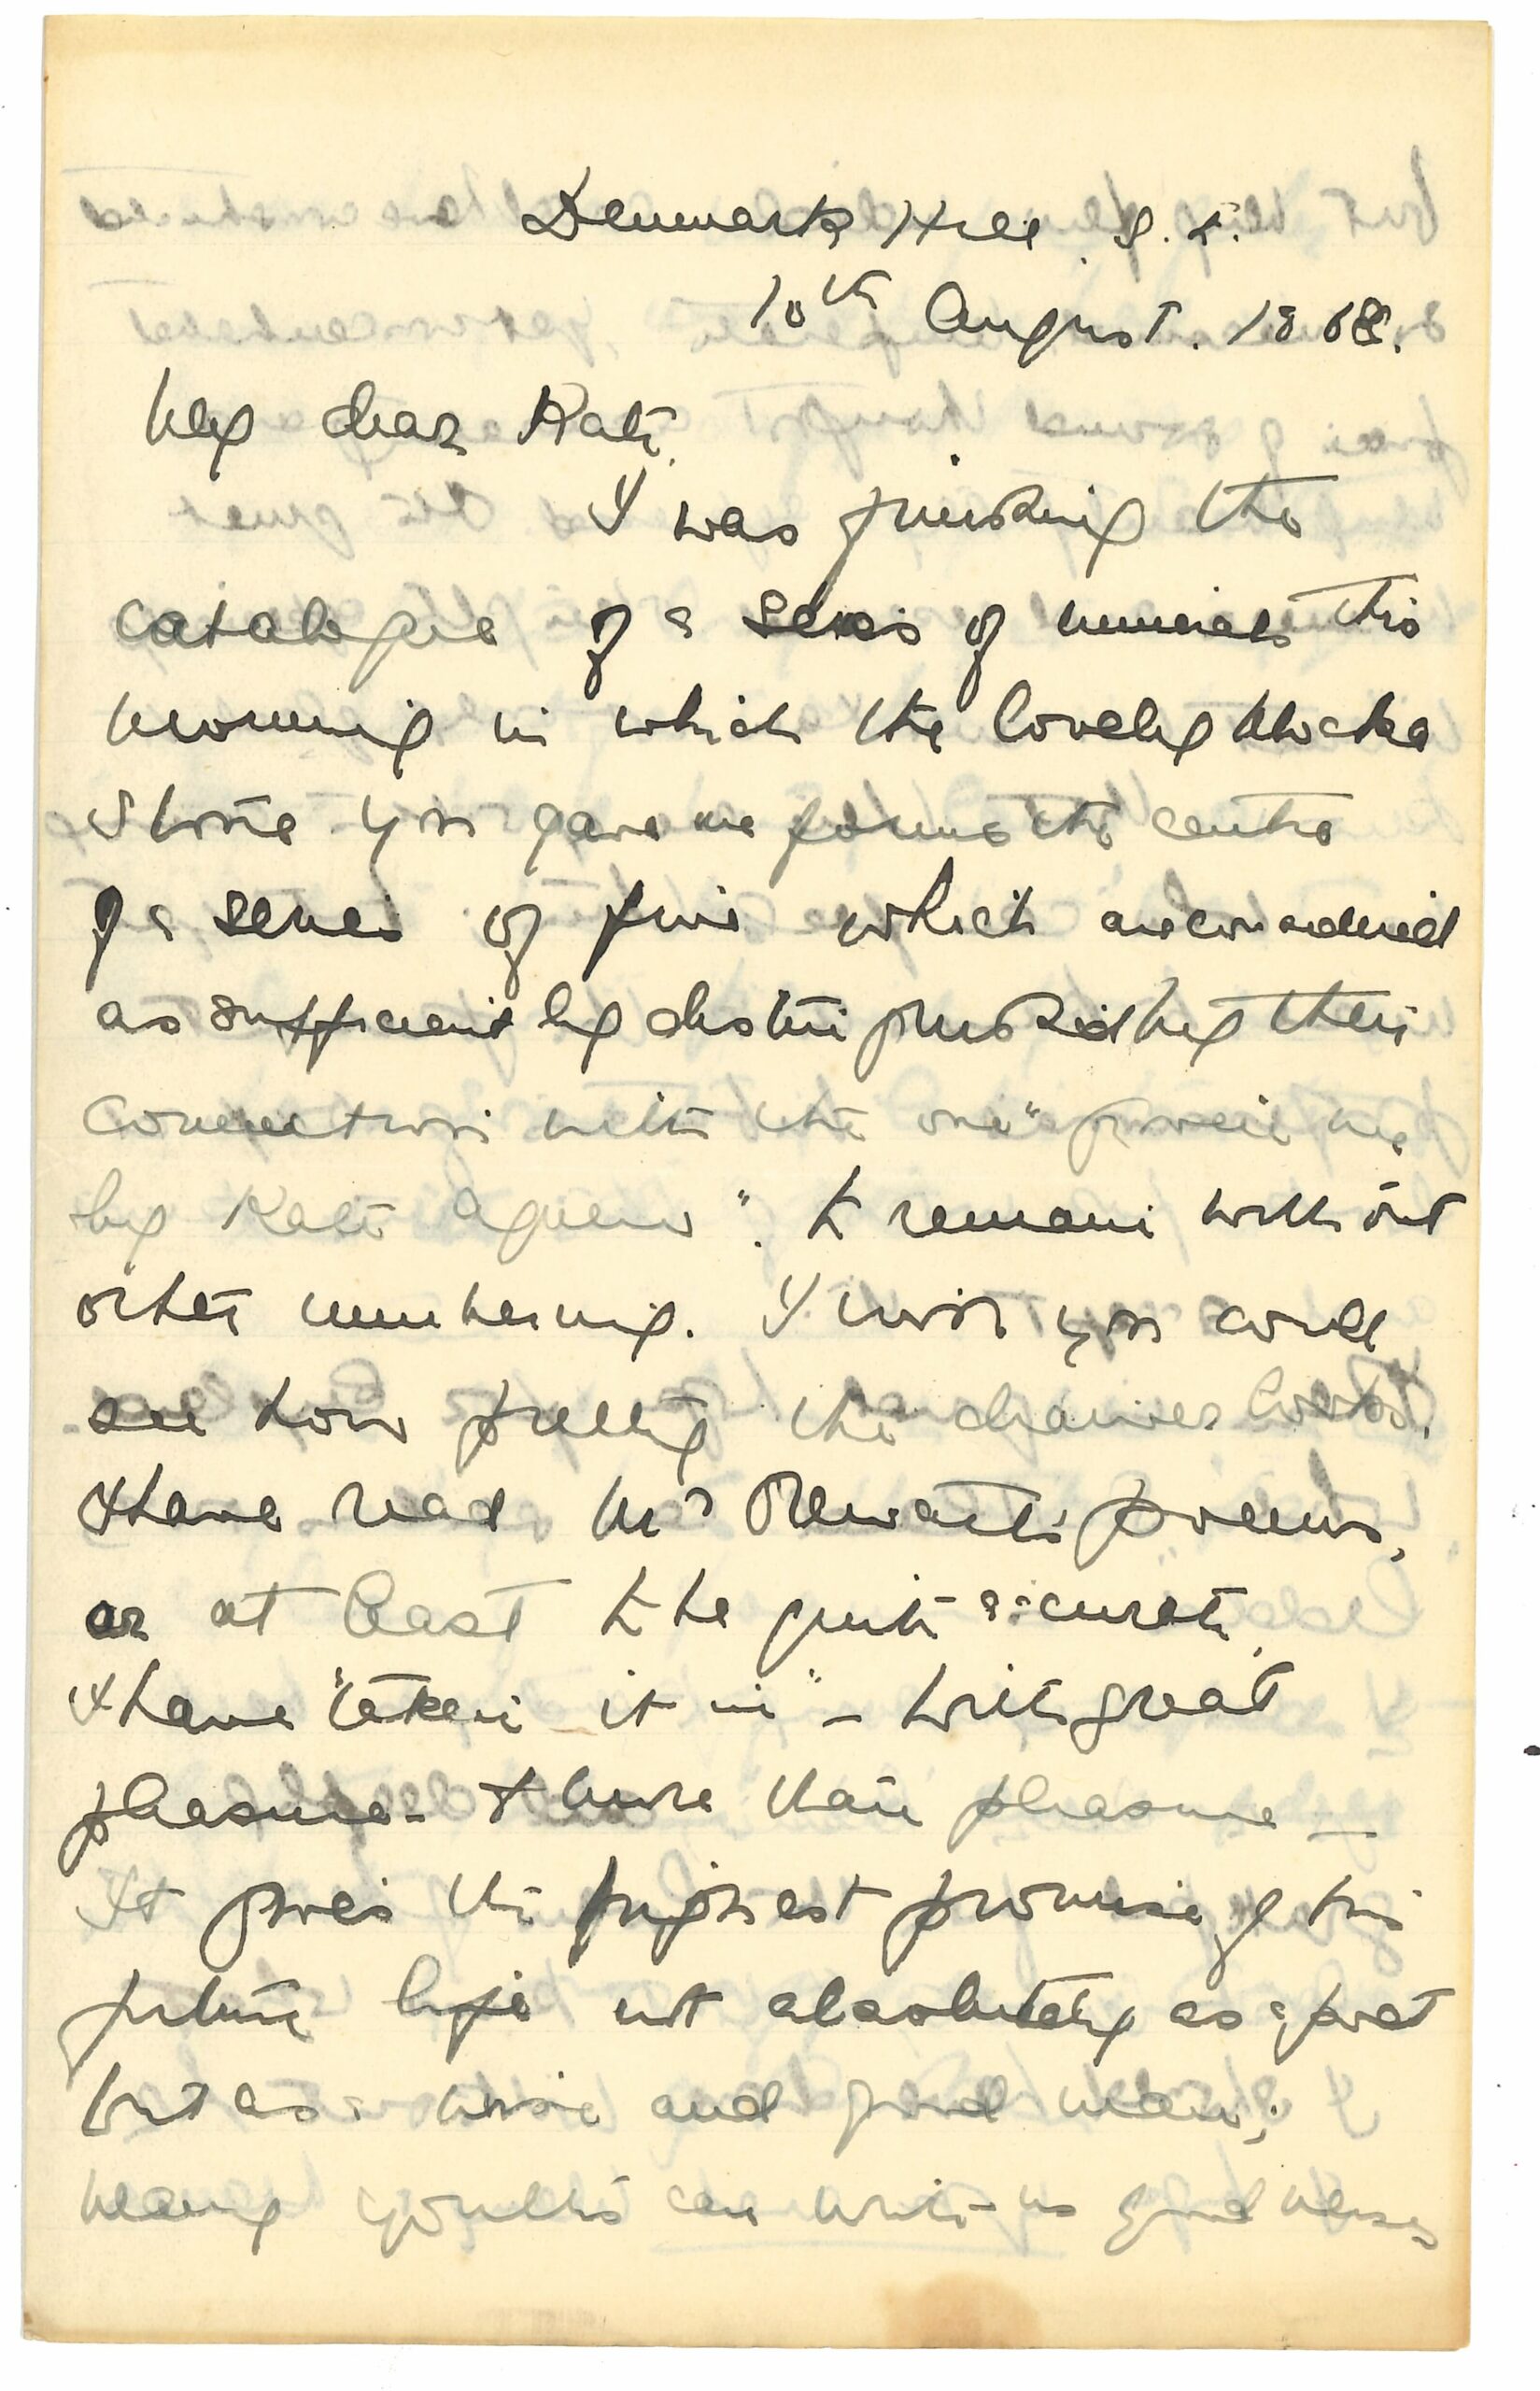 Denmark Hill. S. E.
10th August. 1868.
My dear Kate,
I was finishing the
catalogue of a series of minerals this
morning in which the lovely Mocha
Stone you gave me forms the centre
of a series of five which are considered
as sufficiently distinguished by their
connection with the one "given me
by Kate Agnew". to remain without
other numbering. I wish you could
see how pretty the drawer looks.
I have read Mr poems,
or at least to be quite accurate,
I have "taken it in" - with great
pleasure - & more than pleasure -
It gives the highest promise of his
future life not absolutely as a poet
but as a wise and good man;
Many youths can write as good verses